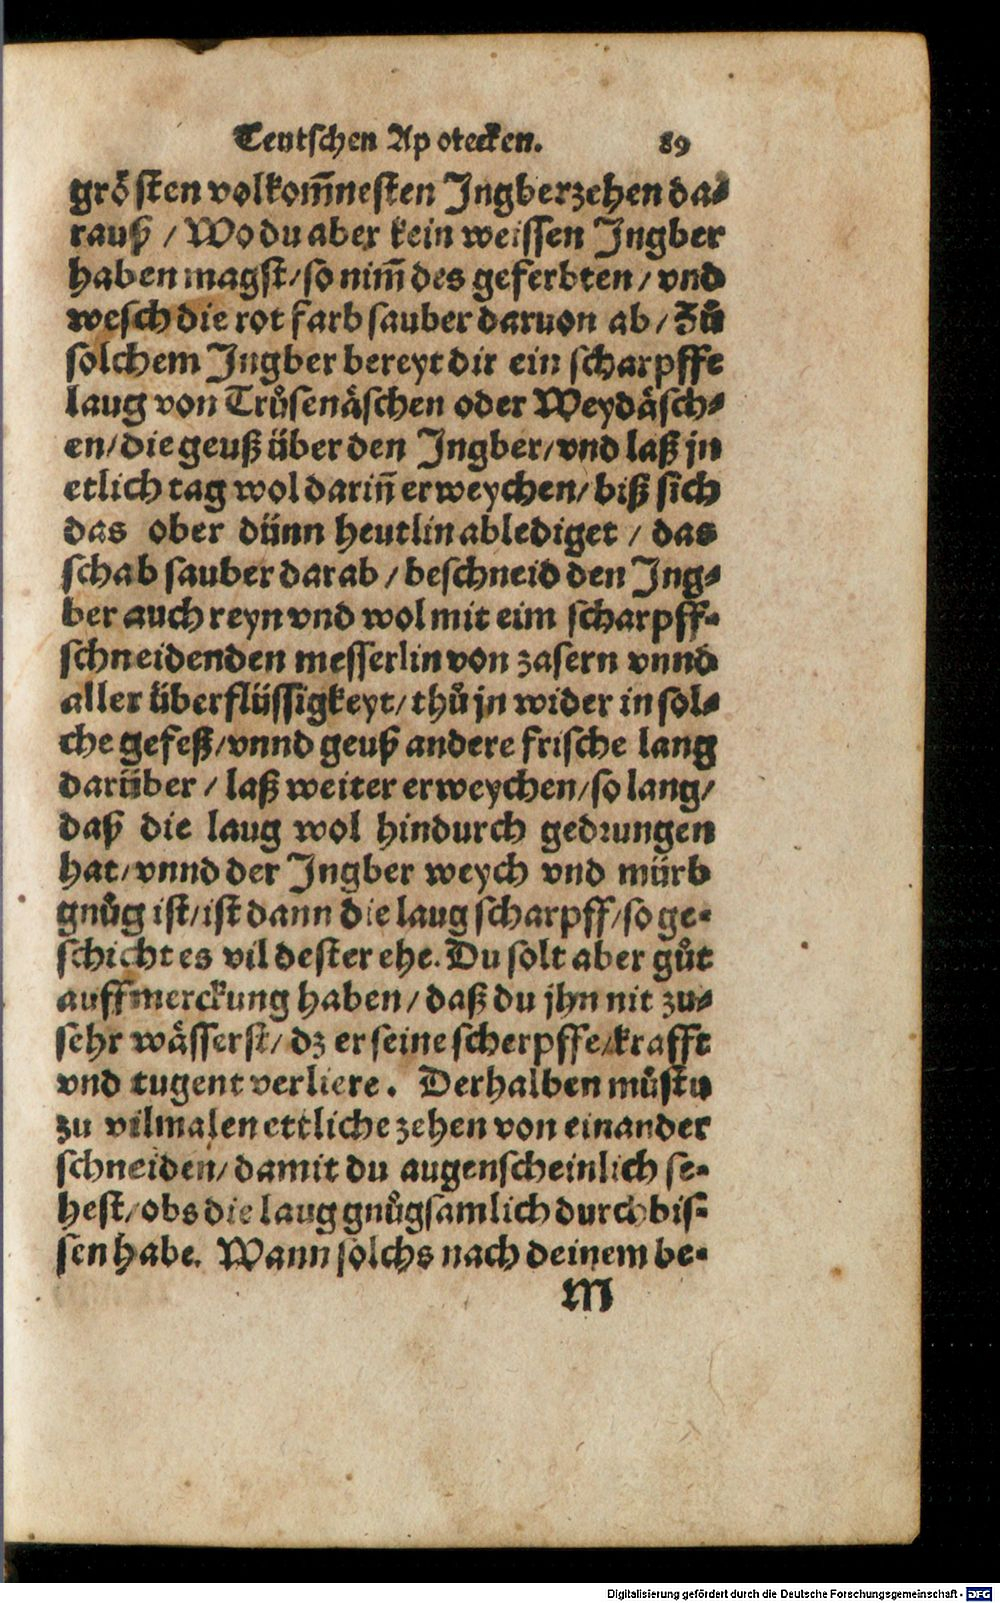 Teutschen Apotecken. 89
grösten volkom̃nesten Ingberzehen da⸗
rauß / Wo du aber kein weissen Ingber
haben magst / so nim̃ des geferbten / vnd
wesch die rot farb sauber daruon ab / Zů
solchem Ingber bereyt dir ein scharpffe
laug von Trůsenäschen oder Weydäsch⸗
en / die geuß über den Ingber / vnd laß jn
etlich tag wol dariñ erweychen / biß sich
das ober dünn heutlin ablediget / das
schab sauber darab / beschneid den Ing⸗
ber auch reyn vnd wol mit eim scharpff⸗
schneidenden messerlin von zasern vnnd
aller überflüssigkeyt / thů jn wider in sol⸗
che gefeß / vnnd geuß andere frische laug
darüber / laß weiter erweychen / so lang /
daß die laug wol hindurch gedrungen
hat / vnnd der Ingber weych vnd mürb
gnůg ist / ist dann die laug scharpff / so ge⸗
schicht es vil dester ehe. Du solt aber gůt
auffmerckung haben / daß du jhn nit zu⸗
sehr wässerst / dz er seine scherpffe / krafft
vnd tugent verliere. Derhalben můstu
zu vilmalen ettliche zehen von einander
schneiden / damit du augenscheinlich se⸗
hest / obs die laug gnůgsamlich durchbis⸗
sen habe. Wann solchs nach deinem be⸗
M
Digitalisierung gefördert durch die Deutsche Forschungsgemeinschaft - DFG